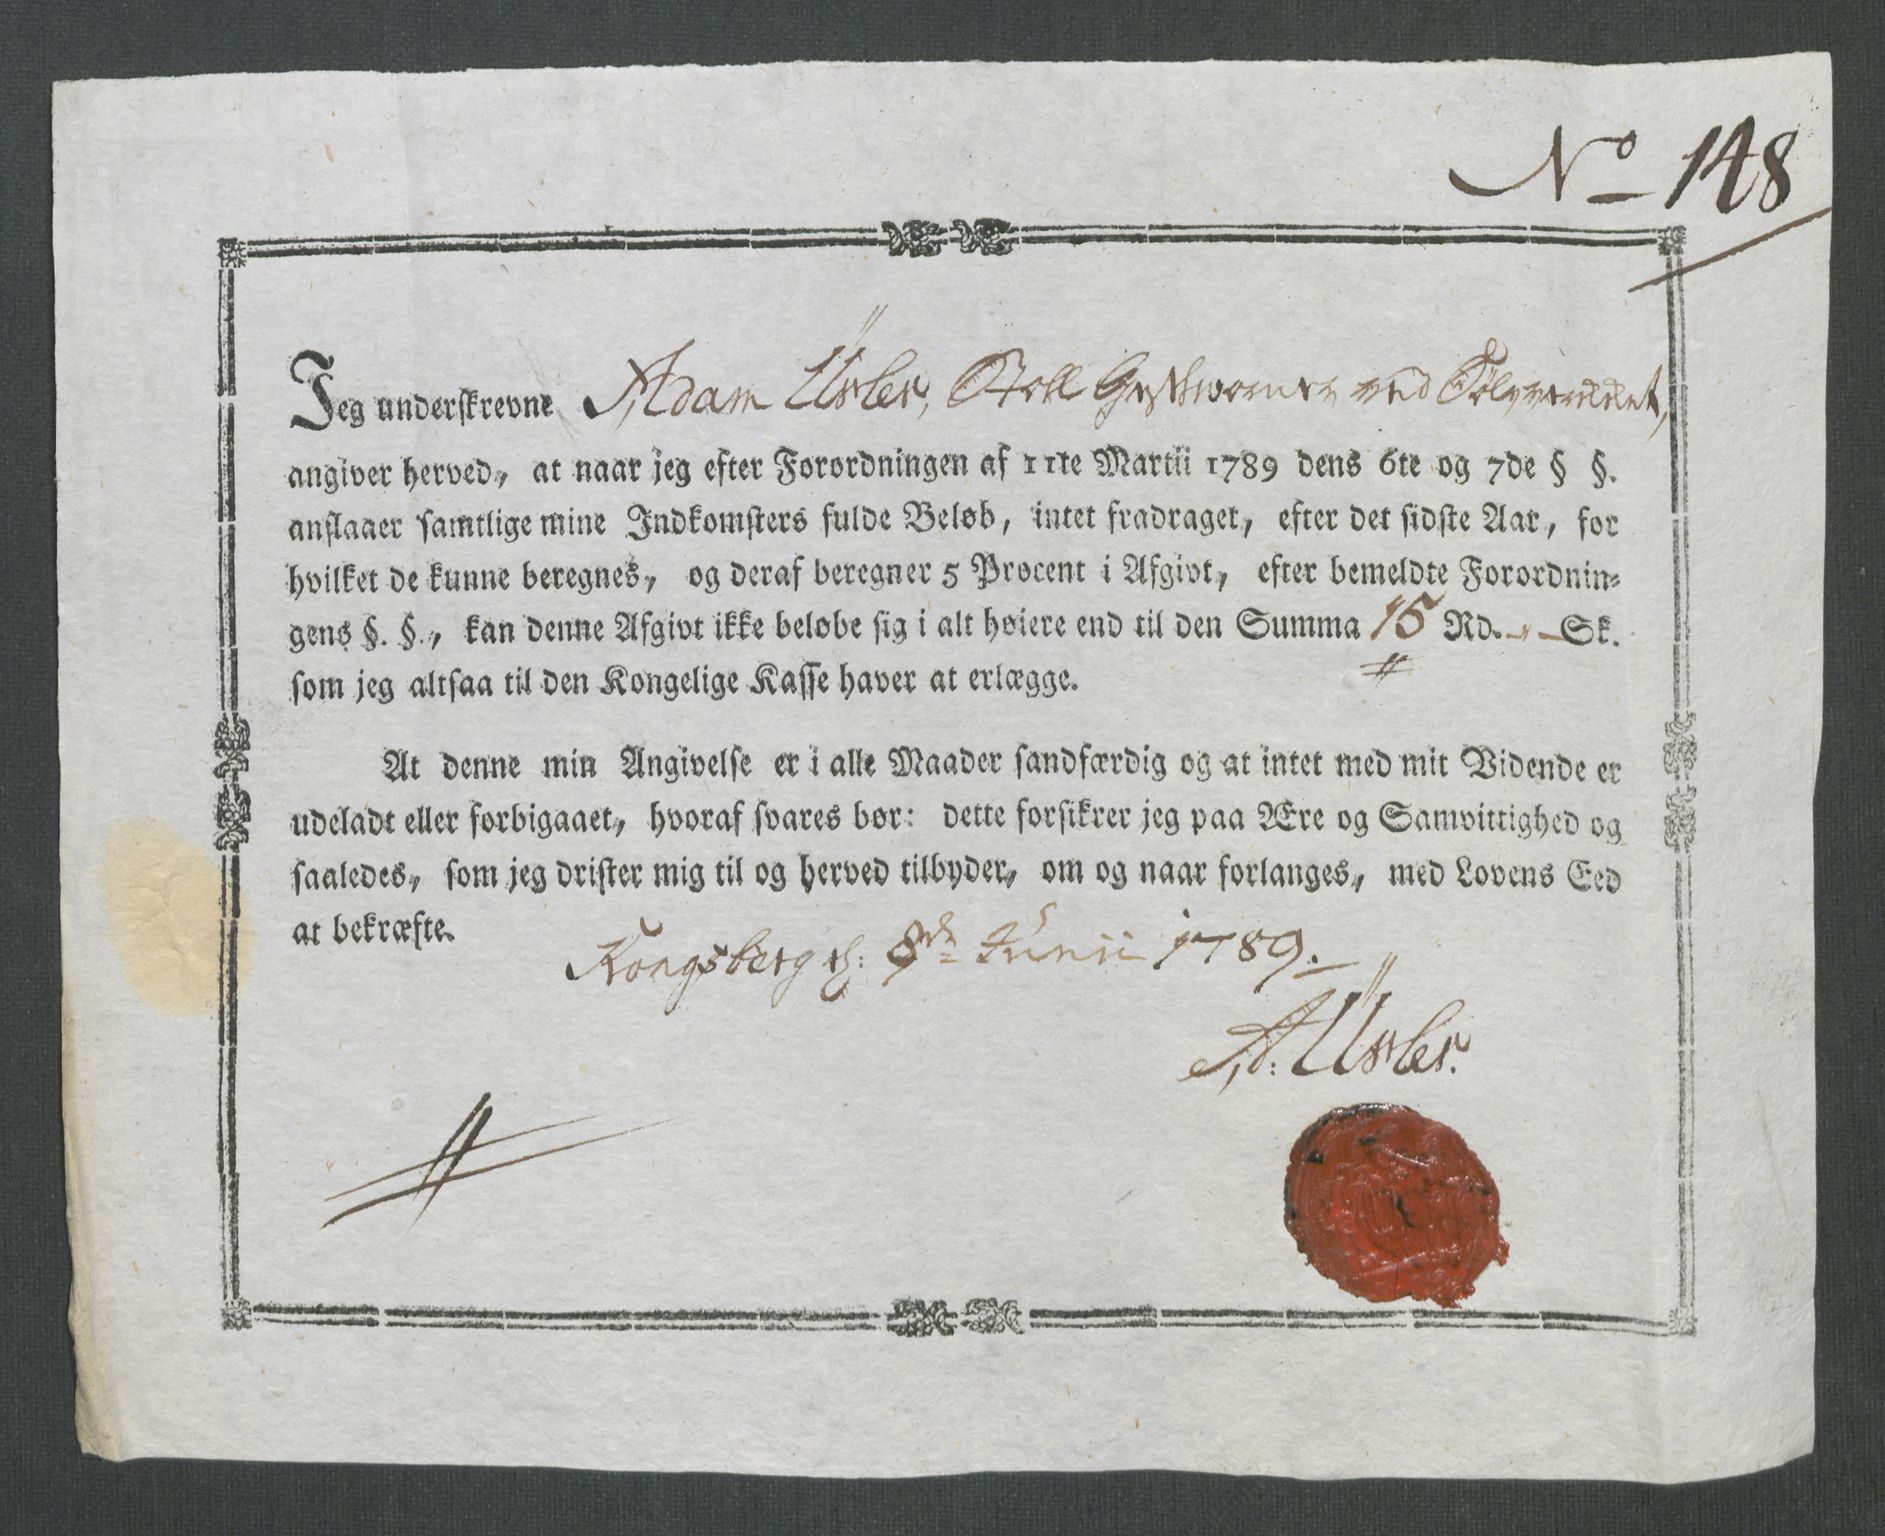 No 148
Jeg underskrevne Adam Üsler, Stoll Geschworner ved Sölvverket,
angiver herved, at naar jeg efter Forordningen af 11te Martii 1789 dens 6te og 7de § §.
anslaaer samtlige mine Indkomsters fulde Beløb, intet fradraget, efter det sidste Aar, for
hvilket de kunne beregnes, og deraf beregner 5 Procent i Afgivt, efter bemeldte Forordnin-
gens §. §., kan denne Afgivt ikke beløbe sig i alt høiere end til den Summa 15 Rd. - Sk.
som jeg altsaa til den Kongelige Kasse haver at erlægge.
At denne min Angivelse er i alle Maader sandfærdig og at intet med mit Vidende er
udeladt eller forbigaaet, hvoraf svares bør: dette forsikrer jeg paa Ære og Samvittighed og
saaledes, som jeg drister mig til og herved tilbyder, om og naar forlanges, med Lovens Eed
at bekræfte.
Kongsberg d: 8de Junii 1789.
Ad: Üsler.